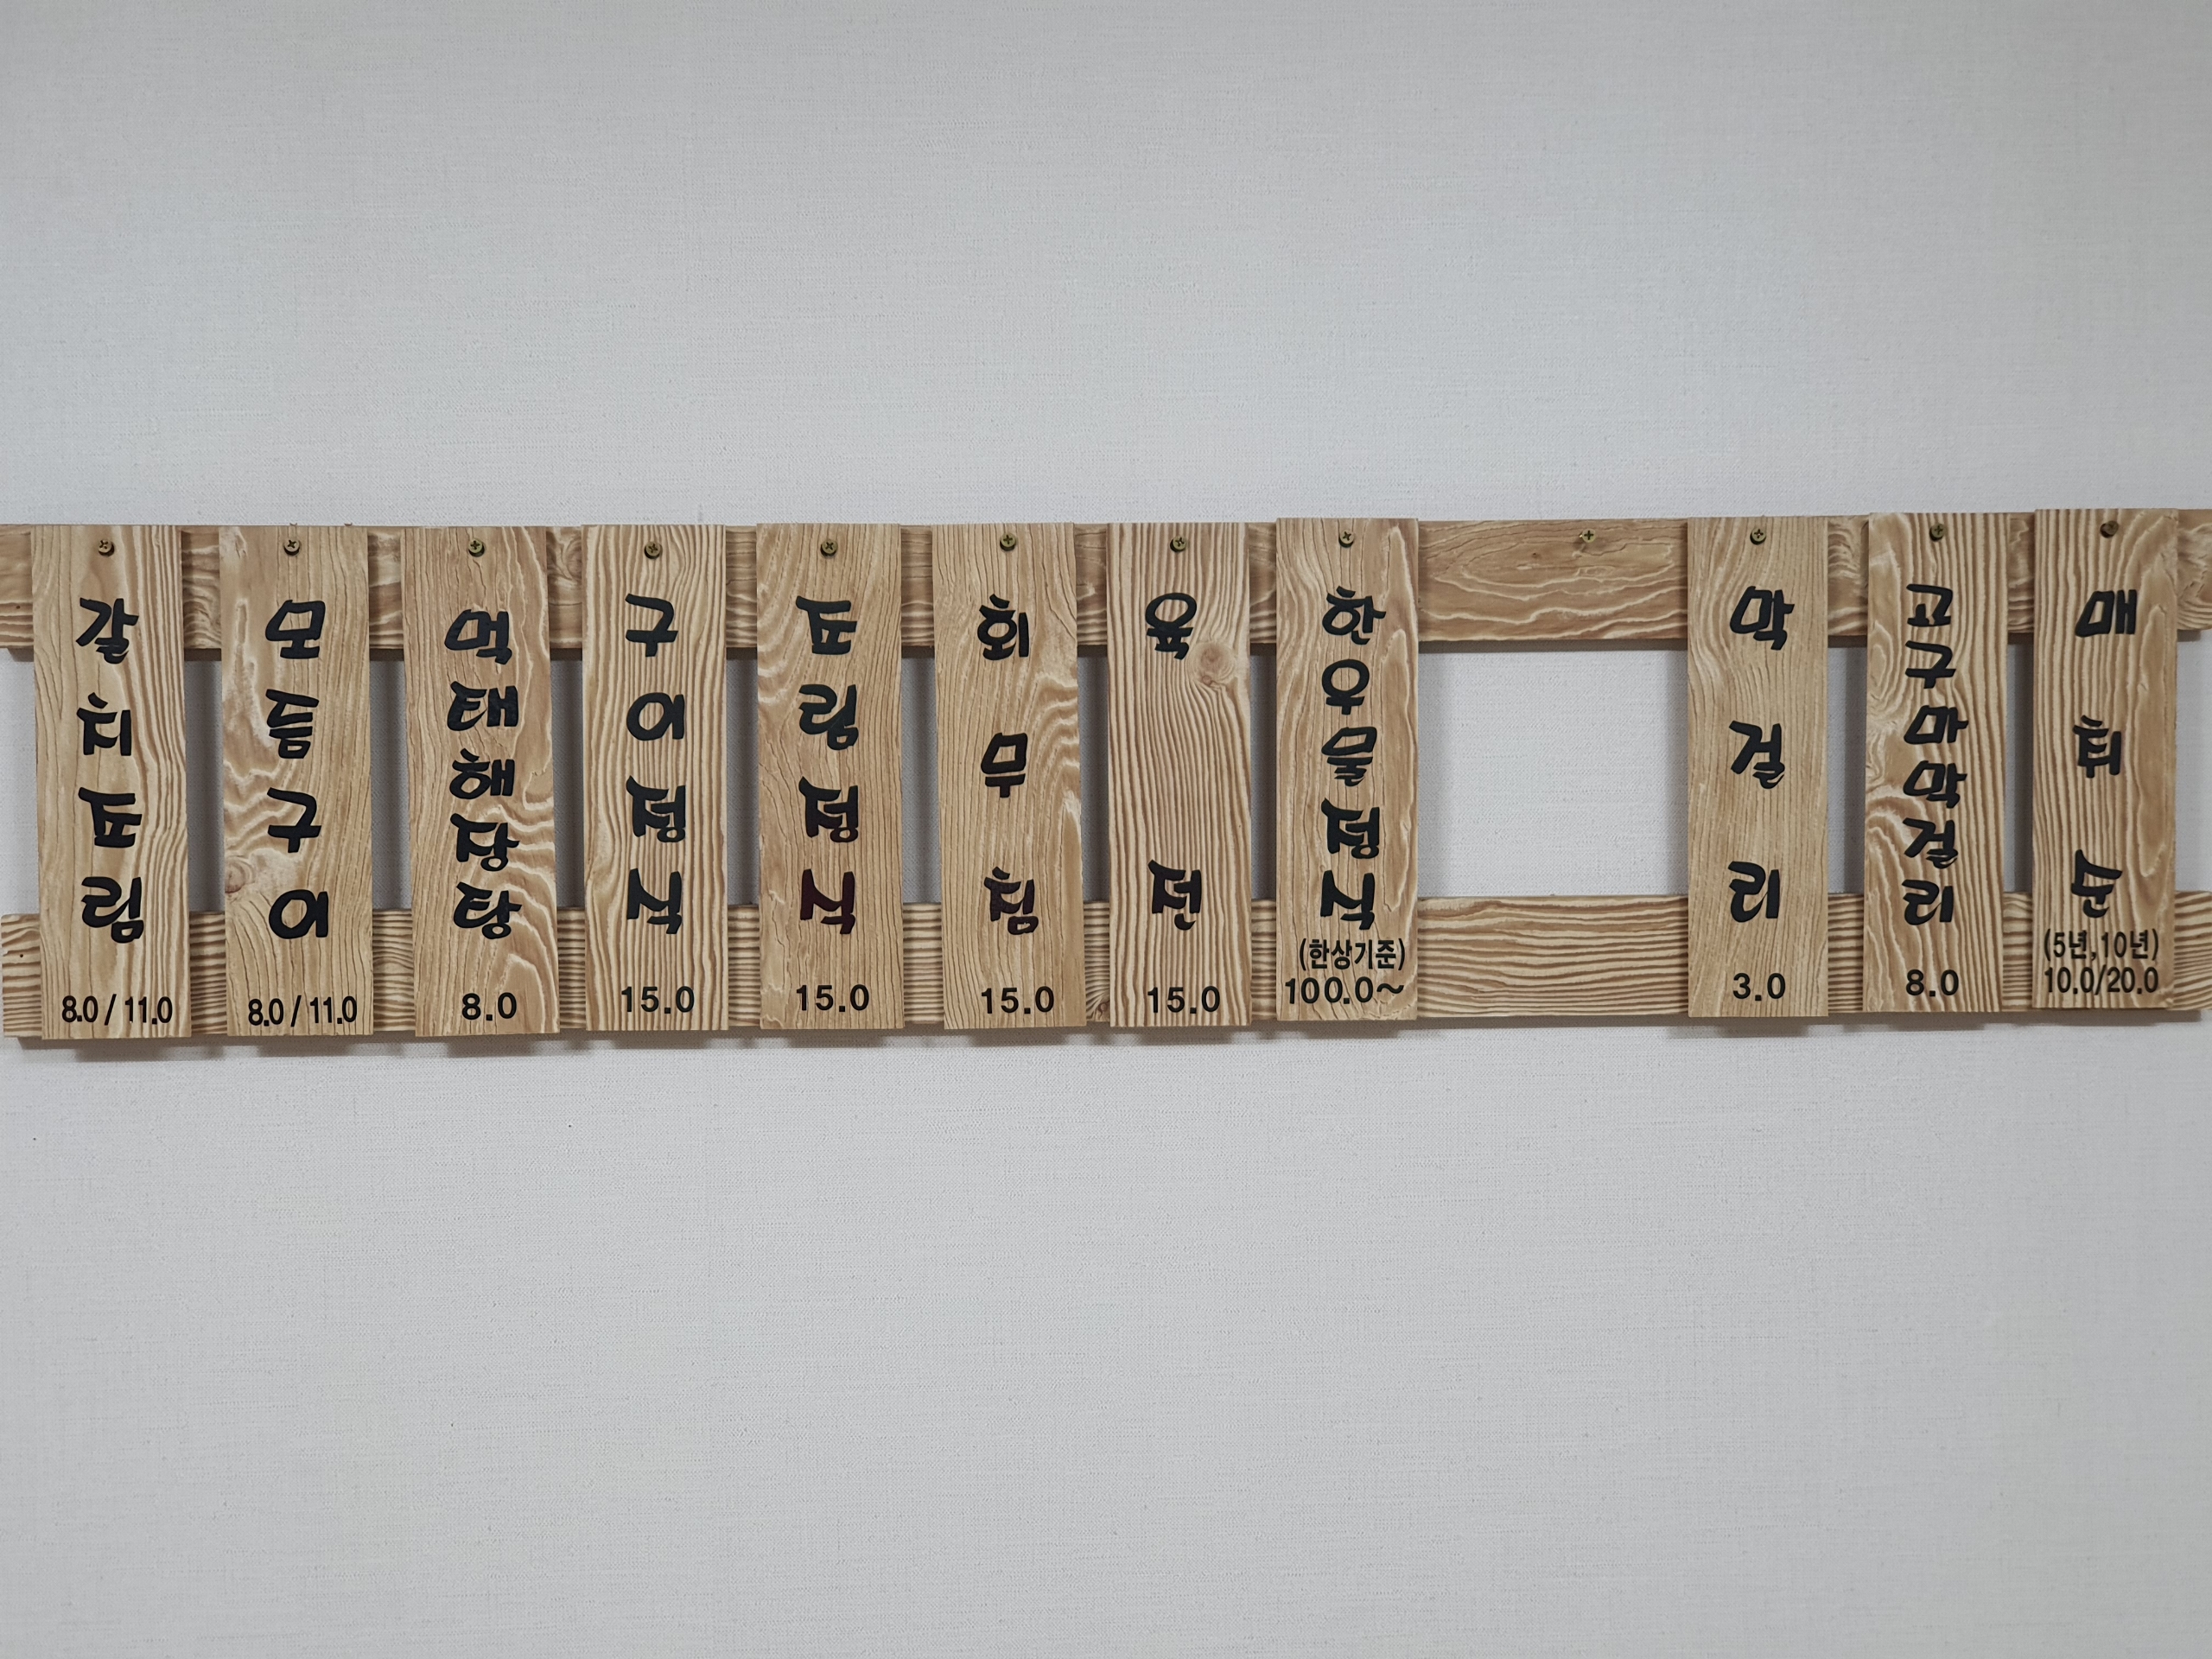 갈치조림
8.0 / 11.0
모듬구이
8.0 / 11.0
먹태해장탕
8.0
구이정식
15.0
조림정식
15.0
회무침
15.0
육전
15.0
한우물정식
(한상기준)
100.0~
막걸리
3.0
고구마막걸리
8.0
매취순
(5년,10년)
10.0/20.0